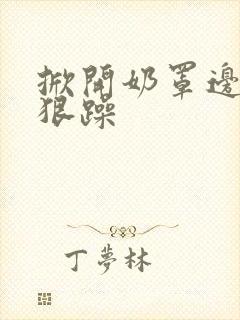 掀開奶罩邊
狠躁
丁夢林